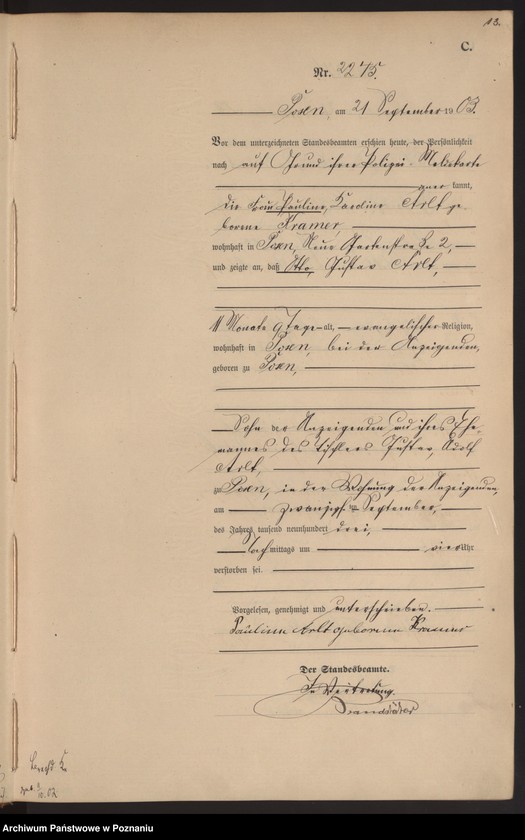 13.
C.
Nr. 2275.
Posen, am 21 September 1903.
Vor dem unterzeichneten Standesbeamten erschien heute, der Persönlichkeit
nach auf Grund ihrer Polizei-Meldekarte
kannt,
die Frau Pauline, Karoline Arlt ge-
borene Kramer,
wohnhaft in Posen, Neue Gartenstraße 2,
und zeigte an, daß Otto, Gustav Arlt,
11 Monate 9 Tage alt, evangelischer Religion,
wohnhaft in Posen, bei der Anzeigenden,
geboren zu Posen,
Sohn der Anzeigenden und ihres Ehe-
mannes des Tischlers Gustav, Adolf
Arlt,
zu Posen, in der Wohnung der Anzeigenden,
am zwanzigsten September,
des Jahres tausend neunhundert drei,
Nachmittags um vier Uhr
verstorben sei.
Vorgelesen, genehmigt und unterschrieben.
Pauline Arlt geborene Kramer
Der Standesbeamte.
In Vertretung.
Archiwum Państwowe w Poznaniu